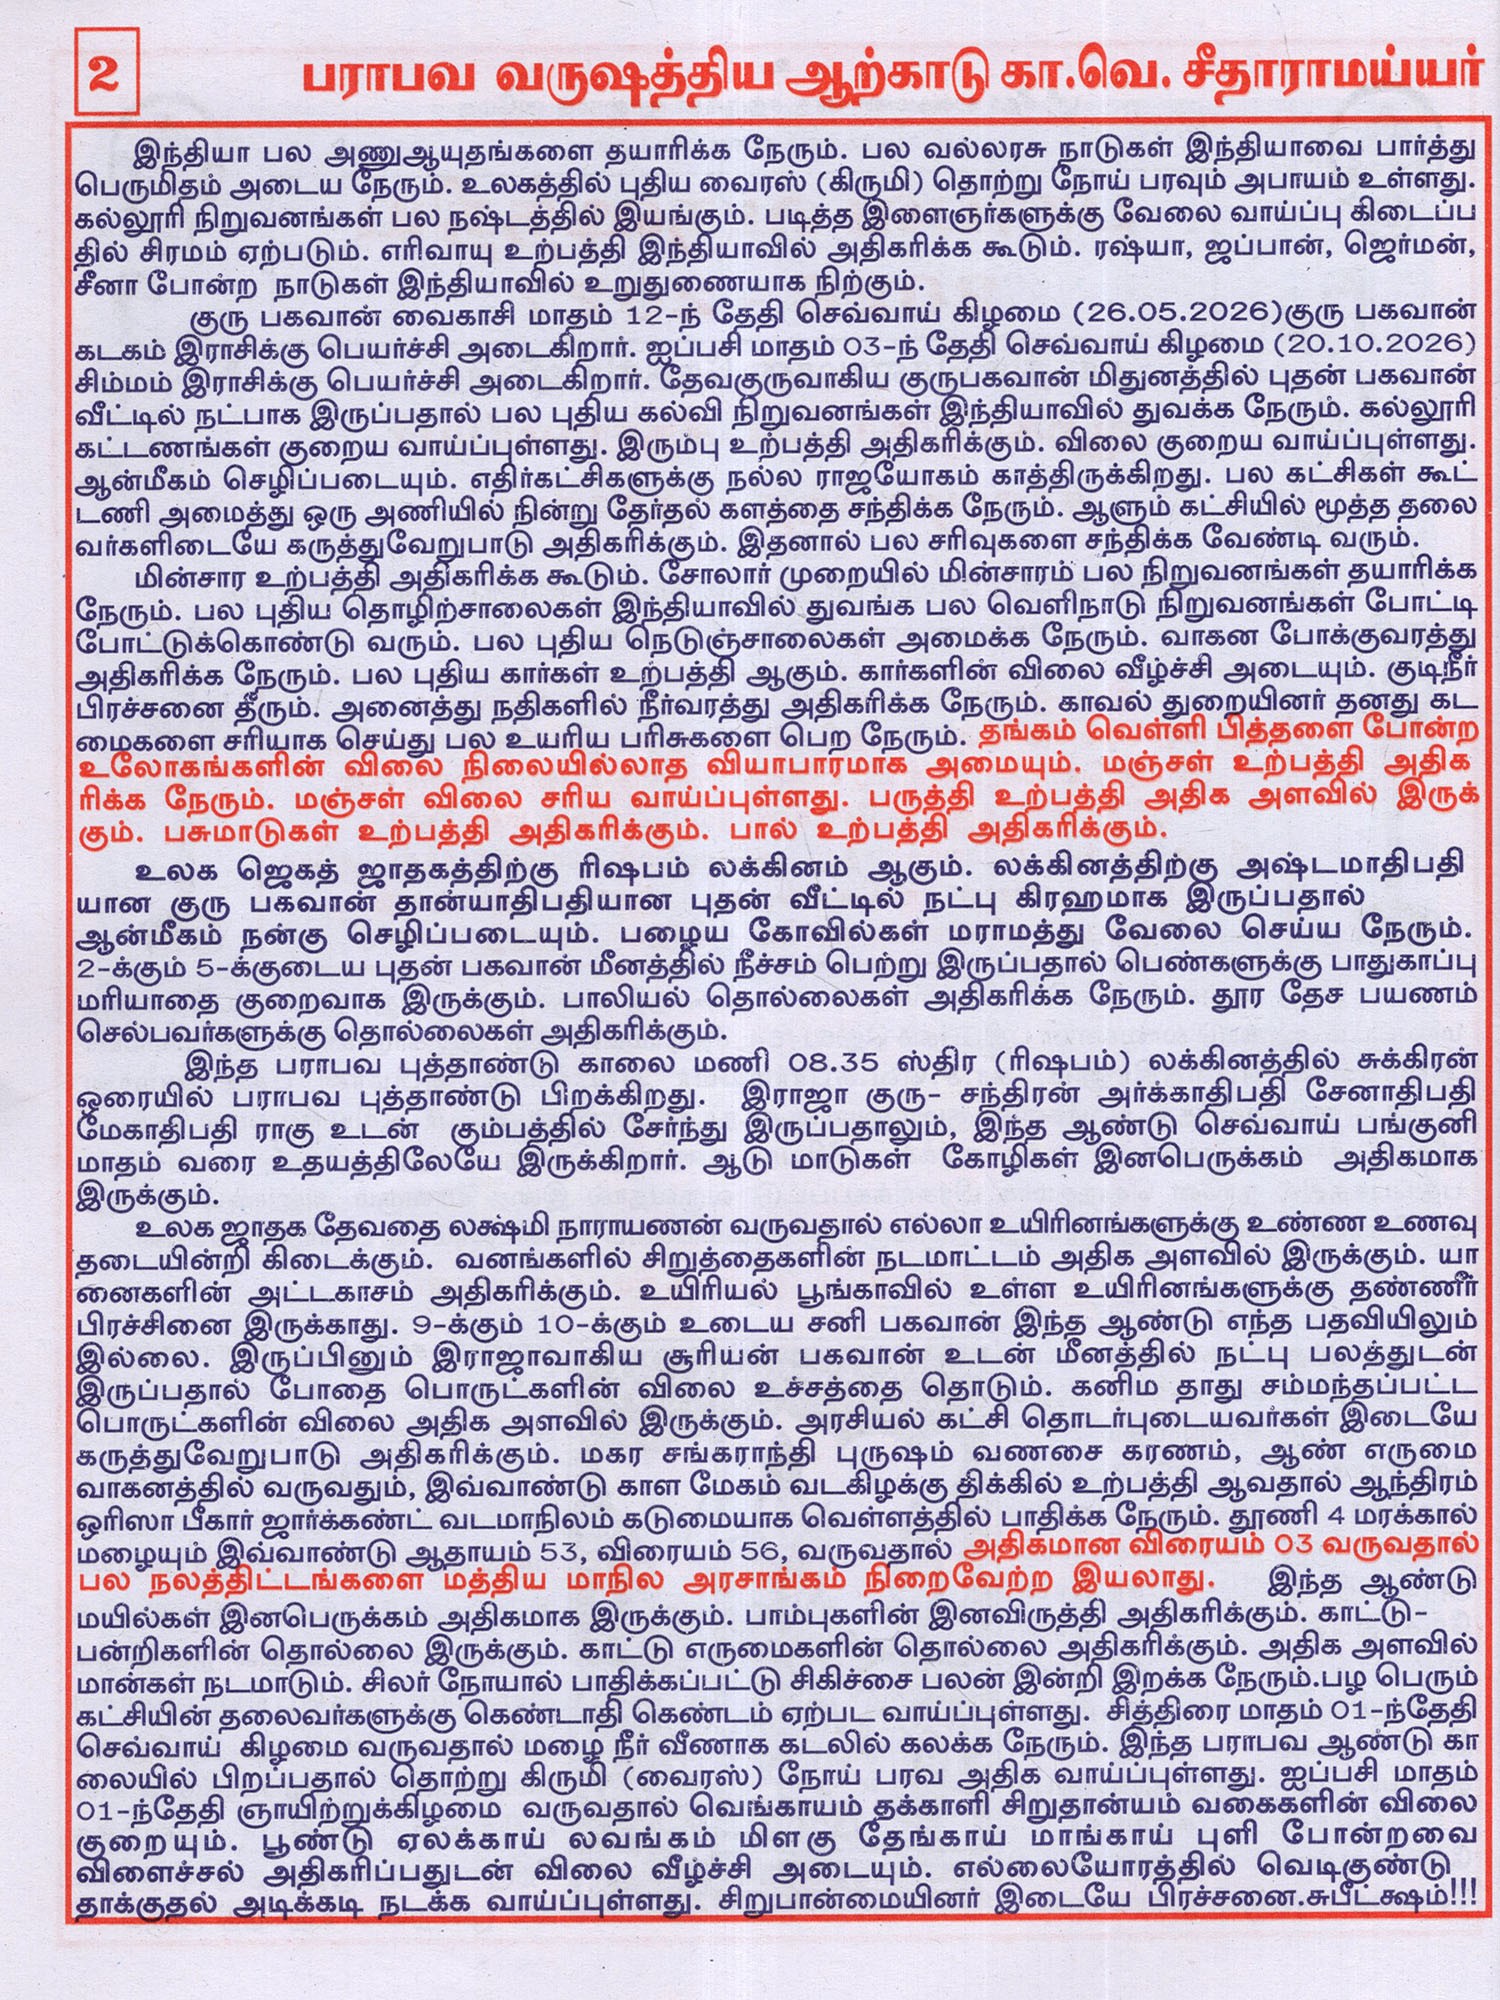 2
பராபவ வருஷத்திய ஆற்காடு கா.வெ. சீதாராமய்யர்
இந்தியா பல அணுஆயுதங்களை தயாரிக்க நேரும். பல வல்லரசு நாடுகள் இந்தியாவை பார்த்து
பெருமிதம் அடைய நேரும். உலகத்தில் புதிய வைரஸ் (கிருமி) தொற்று நோய் பரவும் அபாயம் உள்ளது.
கல்லூரி நிறுவனங்கள் பல நஷ்டத்தில் இயங்கும். படித்த இளைஞர்களுக்கு வேலை வாய்ப்பு கிடைப்ப
தில் சிரமம் ஏற்படும். எரிவாயு உற்பத்தி இந்தியாவில் அதிகரிக்க கூடும். ரஷ்யா, ஜப்பான், ஜெர்மன்,
சீனா போன்ற நாடுகள் இந்தியாவில் உறுதுணையாக நிற்கும்.
குரு பகவான் வைகாசி மாதம் 12-ந் தேதி செவ்வாய் கிழமை (26.05.2026)குரு பகவான்
கடகம் இராசிக்கு பெயர்ச்சி அடைகிறார். ஐப்பசி மாதம் 03-ந் தேதி செவ்வாய் கிழமை (20.10.2026)
சிம்மம் இராசிக்கு பெயர்ச்சி அடைகிறார். தேவகுருவாகிய குருபகவான் மிதுனத்தில் புதன் பகவான்
வீட்டில் நட்பாக இருப்பதால் பல புதிய கல்வி நிறுவனங்கள் இந்தியாவில் துவக்க நேரும். கல்லூரி
கட்டணங்கள் குறைய வாய்ப்புள்ளது. இரும்பு உற்பத்தி அதிகரிக்கும். விலை குறைய வாய்ப்புள்ளது.
ஆன்மீகம் செழிப்படையும். எதிர்கட்சிகளுக்கு நல்ல ராஜயோகம் காத்திருக்கிறது. பல கட்சிகள் கூட்
டணி அமைத்து ஒரு அணியில் நின்று தேர்தல் களத்தை சந்திக்க நேரும். ஆளும் கட்சியில் மூத்த தலை
வர்களிடையே கருத்துவேறுபாடு அதிகரிக்கும். இதனால் பல சரிவுகளை சந்திக்க வேண்டி வரும்.
மின்சார உற்பத்தி அதிகரிக்க கூடும். சோலார் முறையில் மின்சாரம் பல நிறுவனங்கள் தயாரிக்க
நேரும். பல புதிய தொழிற்சாலைகள் இந்தியாவில் துவங்க பல வெளிநாடு நிறுவனங்கள் போட்டி
போட்டுக்கொண்டு வரும். பல புதிய நெடுஞ்சாலைகள் அமைக்க நேரும். வாகன போக்குவரத்து
அதிகரிக்க நேரும். பல புதிய கார்கள் உற்பத்தி ஆகும். கார்களின் விலை வீழ்ச்சி அடையும். குடிநீர்
பிரச்சனை தீரும். அனைத்து நதிகளில் நீர்வரத்து அதிகரிக்க நேரும். காவல் துறையினர் தனது கட
மைகளை சரியாக செய்து பல உயரிய பரிசுகளை பெற நேரும். தங்கம் வெள்ளி பித்தளை போன்ற
உலோகங்களின் விலை நிலையில்லாத வியாபாரமாக அமையும். மஞ்சள் உற்பத்தி அதிக
ரிக்க நேரும். மஞ்சள் விலை சரிய வாய்ப்புள்ளது. பருத்தி உற்பத்தி அதிக அளவில் இருக்
கும். பசுமாடுகள் உற்பத்தி அதிகரிக்கும். பால் உற்பத்தி அதிகரிக்கும்.
உலக ஜெகத் ஜாதகத்திற்கு ரிஷபம் லக்கினம் ஆகும். லக்கினத்திற்கு அஷ்டமாதிபதி
யான குரு பகவான் தான்யாதிபதியான புதன் வீட்டில் நட்பு கிரஹமாக இருப்பதால்
ஆன்மீகம் நன்கு செழிப்படையும். பழைய கோவில்கள் மராமத்து வேலை செய்ய நேரும்.
2-க்கும் 5-க்குடைய புதன் பகவான் மீனத்தில் நீச்சம் பெற்று இருப்பதால் பெண்களுக்கு பாதுகாப்பு
மரியாதை குறைவாக இருக்கும். பாலியல் தொல்லைகள் அதிகரிக்க நேரும். தூர தேச பயணம்
செல்பவர்களுக்கு தொல்லைகள் அதிகரிக்கும்.
இந்த பராபவ புத்தாண்டு காலை மணி 08.35 ஸ்திர (ரிஷபம்) லக்கினத்தில் சுக்கிரன்
ஒரையில் பராபவ புத்தாண்டு பிறக்கிறது. இராஜா குரு- சந்திரன் அர்க்காதிபதி சேனாதிபதி
மேகாதிபதி ராகு உடன் கும்பத்தில் சேர்ந்து இருப்பதாலும், இந்த ஆண்டு செவ்வாய் பங்குனி
மாதம் வரை உதயத்திலேயே இருக்கிறார். ஆடு மாடுகள் கோழிகள் இனபெருக்கம் அதிகமாக
இருக்கும்.
உலக ஜாதக தேவதை லக்ஷ்மி நாராயணன் வருவதால் எல்லா உயிரினங்களுக்கு உண்ண உணவு
தடையின்றி கிடைக்கும். வனங்களில் சிறுத்தைகளின் நடமாட்டம் அதிக அளவில் இருக்கும். யா
னைகளின் அட்டகாசம் அதிகரிக்கும். உயிரியல் பூங்காவில் உள்ள உயிரினங்களுக்கு தண்ணீர்
பிரச்சினை இருக்காது. 9-க்கும் 10-க்கும் உடைய சனி பகவான் இந்த ஆண்டு எந்த பதவியிலும்
இல்லை. இருப்பினும் இராஜாவாகிய சூரியன் பகவான் உடன் மீனத்தில் நட்பு பலத்துடன்
இருப்பதால் போதை பொருட்களின் விலை உச்சத்தை தொடும். கனிம தாது சம்மந்தப்பட்ட
பொருட்களின் விலை அதிக அளவில் இருக்கும். அரசியல் கட்சி தொடர்புடையவர்கள் இடையே
கருத்துவேறுபாடு அதிகரிக்கும். மகர சங்கராந்தி புருஷம் வணசை கரணம், ஆண் எருமை
வாகனத்தில் வருவதும், இவ்வாண்டு காள மேகம் வடகிழக்கு திக்கில் உற்பத்தி ஆவதால் ஆந்திரம்
ஒரிஸா பீகார் ஜார்க்கண்ட் வடமாநிலம் கடுமையாக வெள்ளத்தில் பாதிக்க நேரும். தூணி 4 மரக்கால்
மழையும் இவ்வாண்டு ஆதாயம் 53, விரையம் 56, வருவதால் அதிகமான விரையம் 03 வருவதால்
பல நலத்திட்டங்களை மத்திய மாநில அரசாங்கம் நிறைவேற்ற இயலாது. இந்த ஆண்டு
மயில்கள் இனபெருக்கம் அதிகமாக இருக்கும். பாம்புகளின் இனவிருத்தி அதிகரிக்கும். காட்டு-
பன்றிகளின் தொல்லை இருக்கும். காட்டு எருமைகளின் தொல்லை அதிகரிக்கும். அதிக அளவில்
மான்கள் நடமாடும். சிலர் நோயால் பாதிக்கப்பட்டு சிகிச்சை பலன் இன்றி இறக்க நேரும்.பழ பெரும்
கட்சியின் தலைவர்களுக்கு கெண்டாதி கெண்டம் ஏற்பட வாய்ப்புள்ளது. சித்திரை மாதம் 01-ந்தேதி
செவ்வாய் கிழமை வருவதால் மழை நீர் வீணாக கடலில் கலக்க நேரும். இந்த பராபவ ஆண்டு கா
லையில் பிறப்பதால் தொற்று கிருமி (வைரஸ்) நோய் பரவ அதிக வாய்ப்புள்ளது. ஐப்பசி மாதம்
01-ந்தேதி ஞாயிற்றுக்கிழமை வருவதால் வெங்காயம் தக்காளி சிறுதான்யம் வகைகளின் விலை
குறையும். பூண்டு ஏலக்காய் லவங்கம் மிளகு தேங்காய் மாங்காய் புளி போன்றவை
விளைச்சல் அதிகரிப்பதுடன் விலை வீழ்ச்சி அடையும். எல்லையோரத்தில் வெடிகுண்டு
தாக்குதல் அடிக்கடி நடக்க வாய்ப்புள்ளது. சிறுபான்மையினர் இடையே பிரச்சனை.சுபீட்க்ஷம்!!!